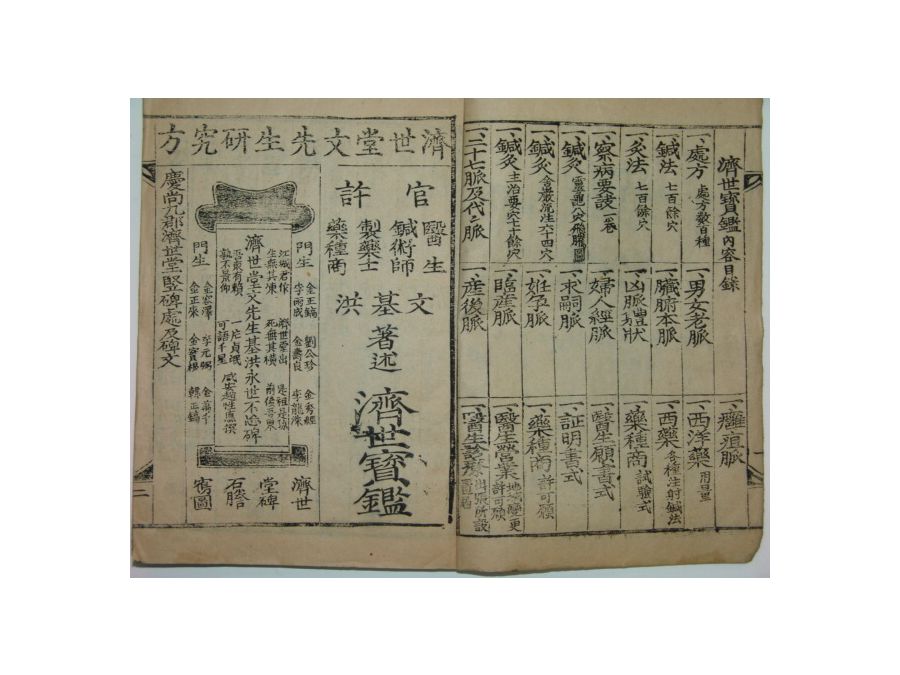 濟世寶鑑 內容目錄
一、處方 處方數百種
一、男女老脈
一、癰疽脈
一、鍼法 七百餘穴
一、臟腑本脈
一、西洋藥 用量
一、灸法 七百餘穴
一、凶脈豊狀
一、西藥 各種注射鍼法
一、察病要訣 一卷
一、婦人經脈
一、藥種商 試驗式
一、鍼灸
一、求嗣脈
一、醫生願書式
一、鍼灸
一、姙孕脈
一、証明書式
一、鍼灸 主治要穴七十餘穴
一、臨産脈
一、藥種商 許可願
一、二十七脈及代之脈
一、産後脈
一、醫生營業 地域變更 許可願
濟世堂文先生研究方
官許
醫生
鍼術師
製藥士
藥種商
文基洪
著述
濟世寶鑑
門生
金正鎬
李而成
劉公珍
金壽良
金秀經
李龍滌
濟世堂文先生基洪永世不忘碑
門生
金宏澤
金正來
李元弼
金寶根
金萬千
韓正鎬
濟世
堂碑
石謄
寫圖
慶尚九郡濟世堂竪碑處及碑文
二